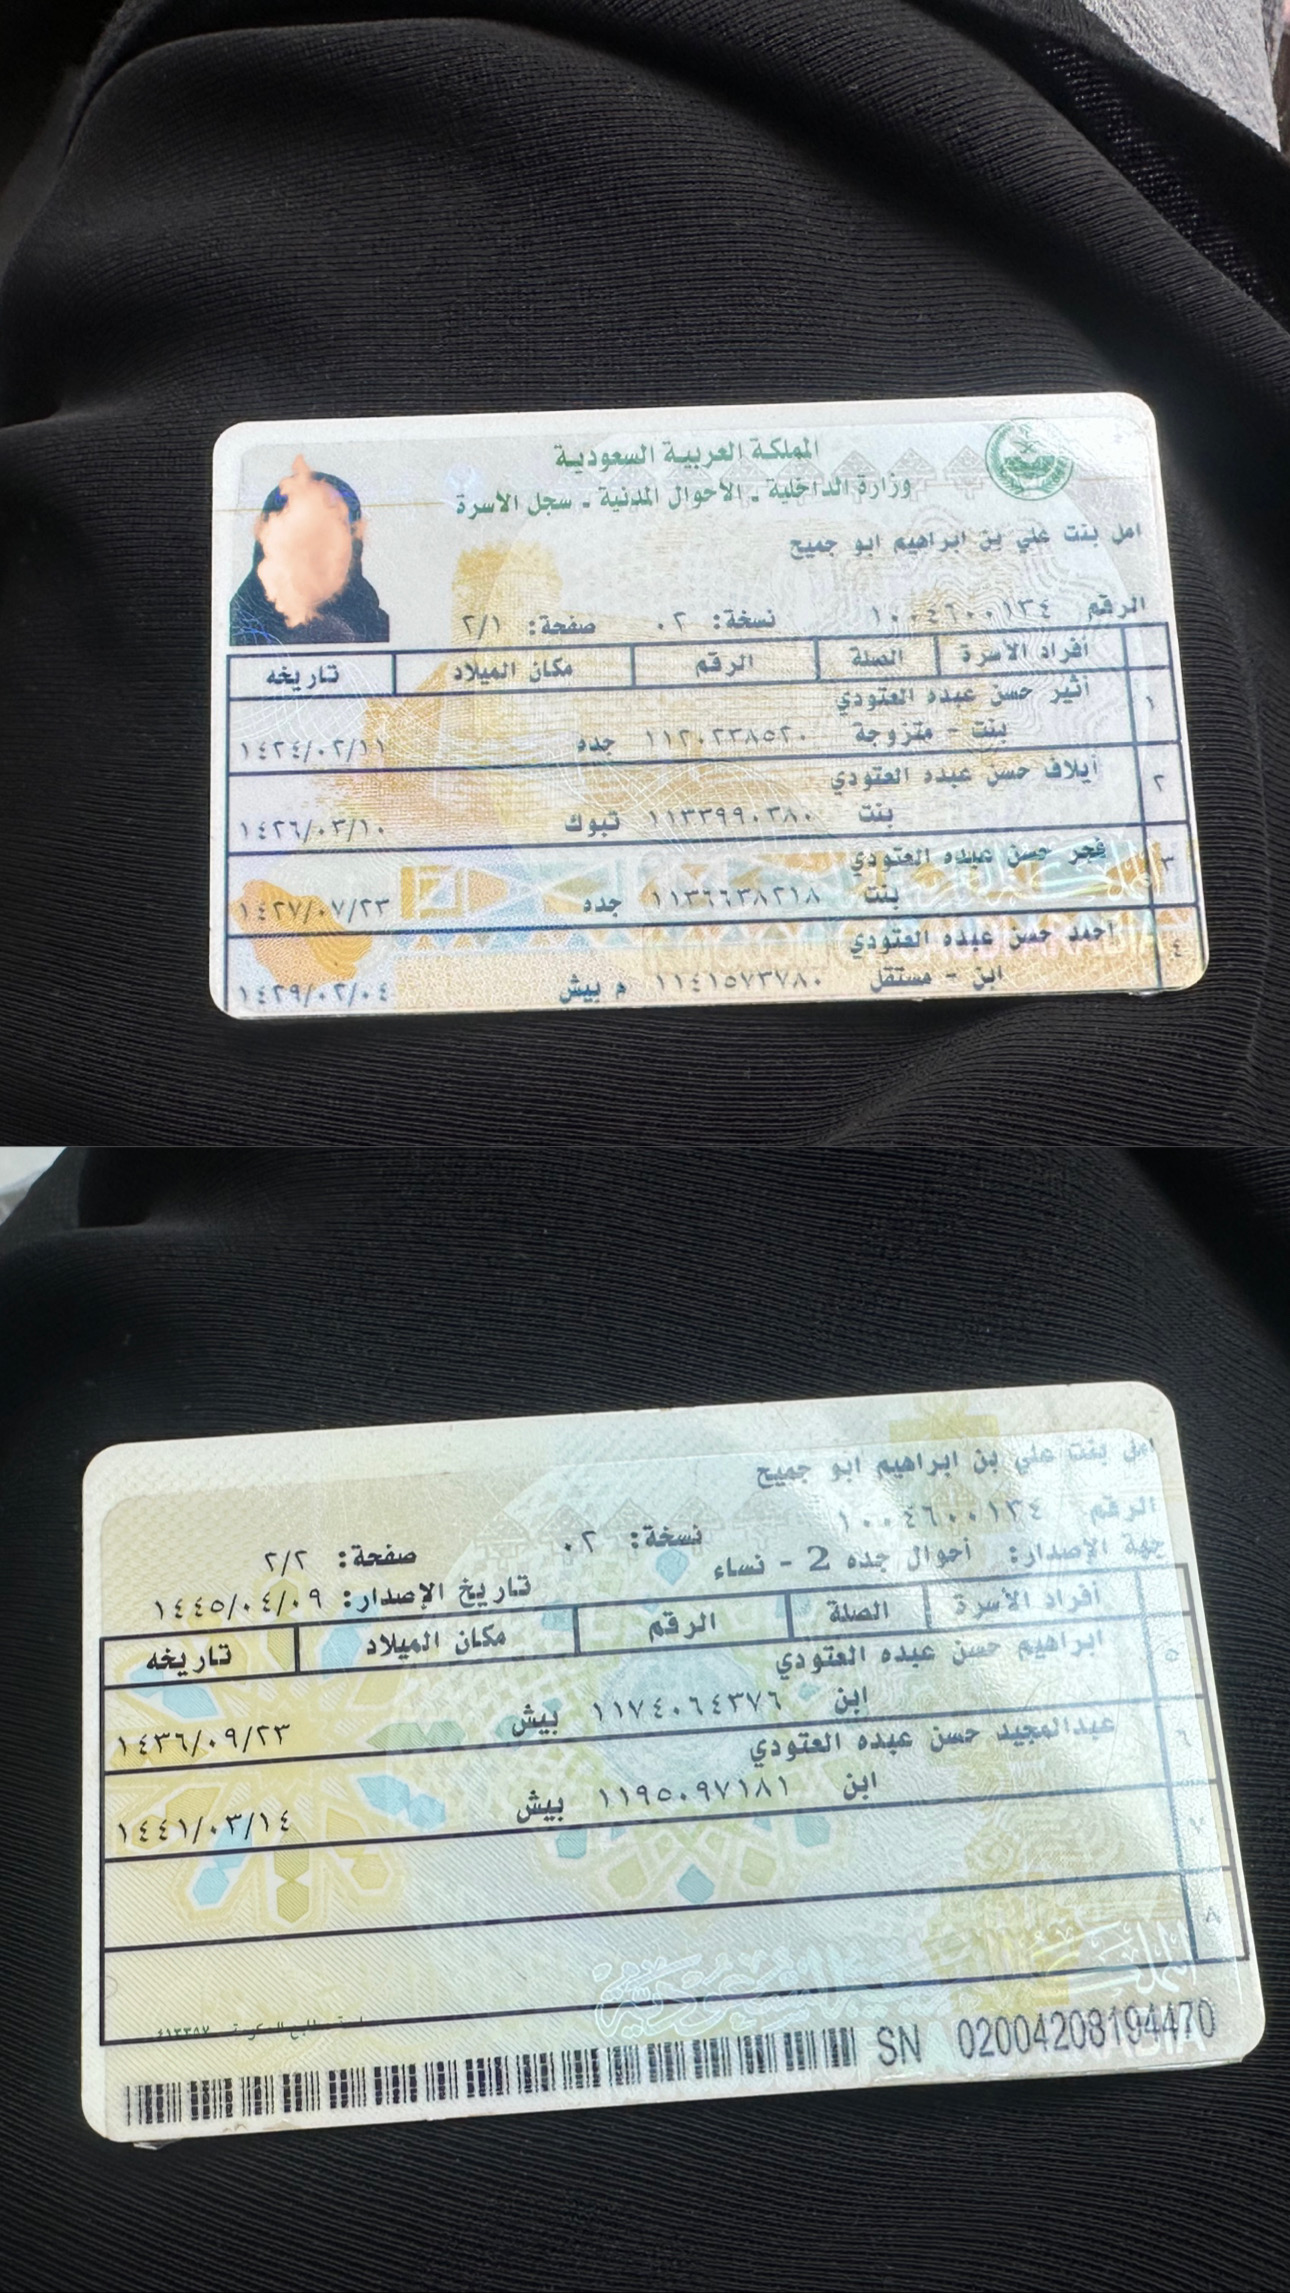 المملكة العربية السعودية
وزارة الداخلية - الأحوال المدنية - سجل الأسرة
امل بنت علي بن ابراهيم ابو جميح
الرقم ١٠٠٤٦٠٠١٣٤ نسخة: ٠٢ صفحة: ٢/١
أفراد الأسرة الصلة الرقم مكان الميلاد تاريخه
١ أثير حسن عبده العتودي
بنت - متزوجة ١١٢٠٢٣٨٥٢٠ جده ١٤٢٤/٠٢/١١
٢ أيلاف حسن عبده العتودي
بنت ١١٣٣٩٩٠٣٨٠ تبوك ١٤٢٦/٠٣/١٠
٣ فجر حسن عبده العتودي
بنت ١١٣٦٦٣٨٢١٨ جده ١٤٢٧/٠٧/٢٣
٤ احمد حسن عبده العتودي
ابن - مستقل ١١٤١٥٧٣٧٨٠ م بيش ١٤٢٩/٠٢/٠٤
امل بنت علي بن ابراهيم ابو جميح
الرقم ١٠٠٤٦٠٠١٣٤ نسخة: ٠٢ صفحة: ٢/٢
جهة الإصدار: أحوال جده 2 - نساء تاريخ الإصدار: ١٤٤٥/٠٤/٠٩
أفراد الأسرة الصلة الرقم مكان الميلاد تاريخه
٥ ابراهيم حسن عبده العتودي
ابن ١١٧٤٠٦٤٣٧٦ بيش ١٤٣٦/٠٩/٢٣
٦ عبدالمجيد حسن عبده العتودي
ابن ١١٩٥٠٩٧١٨١ بيش ١٤٤١/٠٣/١٤
٧
٨
SN 02004208194470